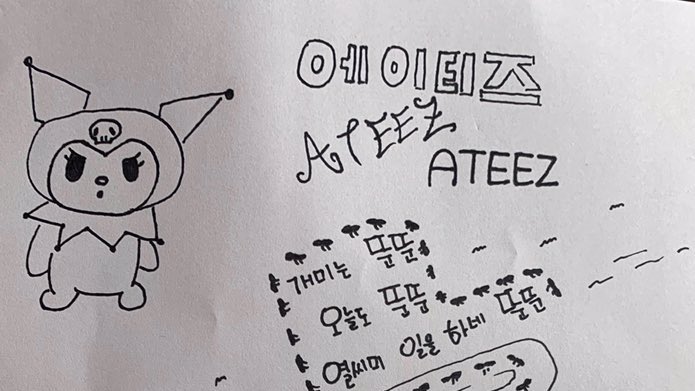 에이티즈
ATEEZ
ATEEZ
개미는 뚠뚠
오늘도 뚠뚠
열씨미 일을 하네 뚠뚠